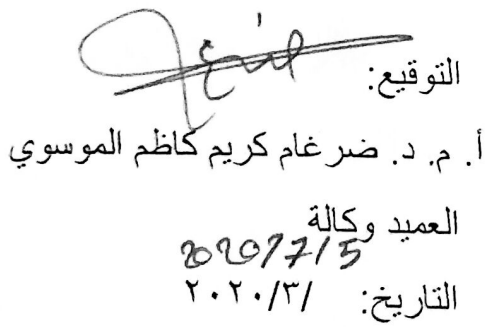 التوقيع:
أ. م. د. ضرغام كريم كاظم الموسوي
العميد وكالة
2020/7/5
التاريخ: /٢٠٢٠/٣